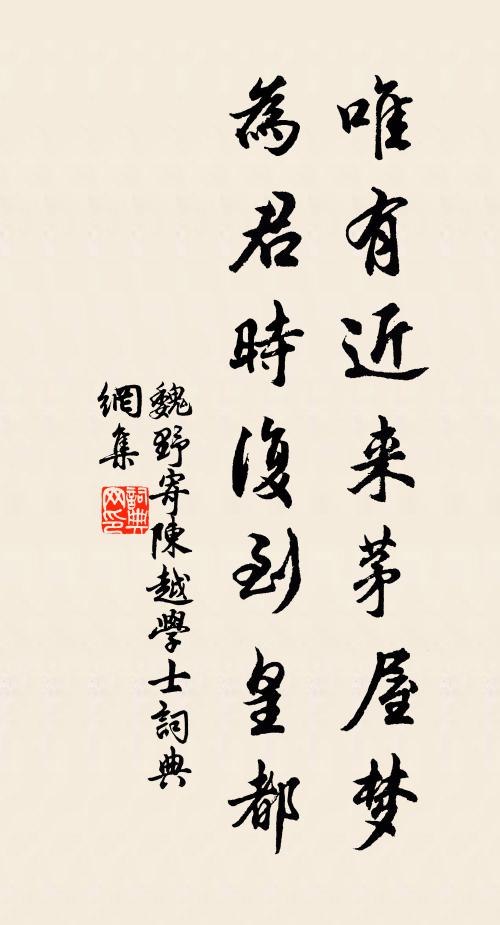 唯有近来茅屋梦
為君時復到皇都
魏野寄陳越學士詞典
網集
詞典網印